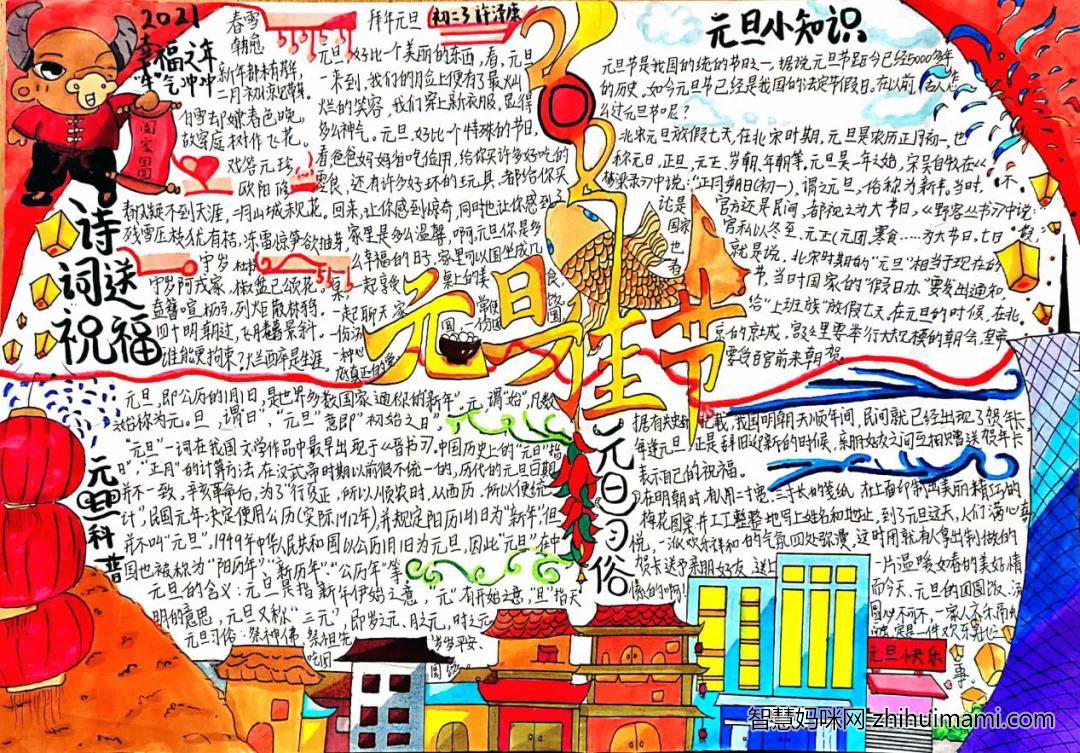 2021
幸福之年
"牛"气冲冲
春雪
韩愈
新年都未有芳华，
二月初惊见草芽。
白雪却嫌春色晚，
故穿庭树作飞花。
戏答元珍
欧阳修
春风疑不到天涯，二月山城未见花。
残雪压枝犹有桔，冻雷惊笋欲抽芽。
守岁
守岁阿戎家，椒盘已颂花。
盍簪喧枥马，列炬散林鸦。
四十明朝过，飞腾暮景斜。
谁能更拘束？烂醉是生涯。
诗词送祝福
拜年元旦
初二3
元旦，好比一个美丽的东西，看，元旦
一来到，我们的脸上便有了最灿
烂的笑容，我们穿上新衣服，显得
多么神气。元旦，好比一个特殊的节日，
看爸爸妈妈省吃俭用，给你买许多好吃的
零食，还有许多好玩的玩具，都给你买
回来，让你感到惊奇，同时也让你感到了
家里是多么温馨，啊，元旦你是多
么幸福的日子，家里可以围坐成几
一起聊天
元旦小知识
元旦节是我国的传统的节日之一，据说元旦节距今已经5000多年
的历史，如今元旦节已经是我国的法定节假日。在以前，古人怎
么过元旦节呢？
北宋元旦放假七天，在北宋时期，元旦是农历正月初一，也
称元日，正旦，元正，岁朝，年朝等。元旦是一年之始，宋吴自牧在《
梦梁录》中说："正月朔日(初一)，谓之元旦，俗称为新年。当时，不
论是官方还是民间，都视之为大节日，《野客丛书》中说：
国家官私以冬至、元正(元旦)、寒食……为大节日，七日假，"
也就是说，北宋时期的"元旦"相当于现在的
有节，当时国家的"假日办"要发出通知
给"上班族"放假七天，在元旦的时候，在北
京的京城，宫殿里要举行大规模的朝会，皇帝
要受百官前来朝贺。
元旦佳节
元旦科普
元旦，即公历的1月1日，是世界多数国家通称的"新年"。元，谓"始"，凡数
之始称为元。旦，谓"日"，"元旦"意即"初始之日"。
"元旦"一词在我国文学作品中最早出现于《晋书》，中国历史上的"元旦"指
日"，"正月"的计算方法，在汉武帝时期以前很不统一的，历代的元旦日期
并不一致，辛亥革命后，为了"行夏正，所以顺农时，从西历，所以便统
计"，民国元年决定使用公历(实际1912年)，并规定阳历1月1日为"新年"，但
并不叫"元旦"，1949年中华人民共和国以公历1月1日为元旦，因此"元旦"在中
国也被称为"阳历年""新历年""公历年"等
元旦的含义：元旦是指新年伊始之意，"元"有开始之意，"旦"指天
明的意思，元旦又称"三元"，即岁之元、月之元，时之元
元旦习俗：祭神佛，祭祖先
岁岁平安、
元旦习俗
据有关史书记载，我国明朝天顺年间，民间就已经出现了贺年卡，
每逢元旦，正是辞旧迎新的时候，亲朋好友之间互相赠送贺年卡
表示自己的祝福。
在明朝时，有人用二寸宽，三寸长的笺纸，在上面印制出美丽精巧的
梅花图案并工工整整地写上姓名和地址，到了元旦这天，人们满心喜
悦，一派欢乐祥和的气氛四处弥漫，这时用就有人拿出制做的
贺卡送予亲朋好友，送上一片温暖如春的美好情
而今天，元旦的团圆饭、汤
圆必不可不，一家人交乐而
元旦快乐
智慧妈咪网-zhihuimami.com